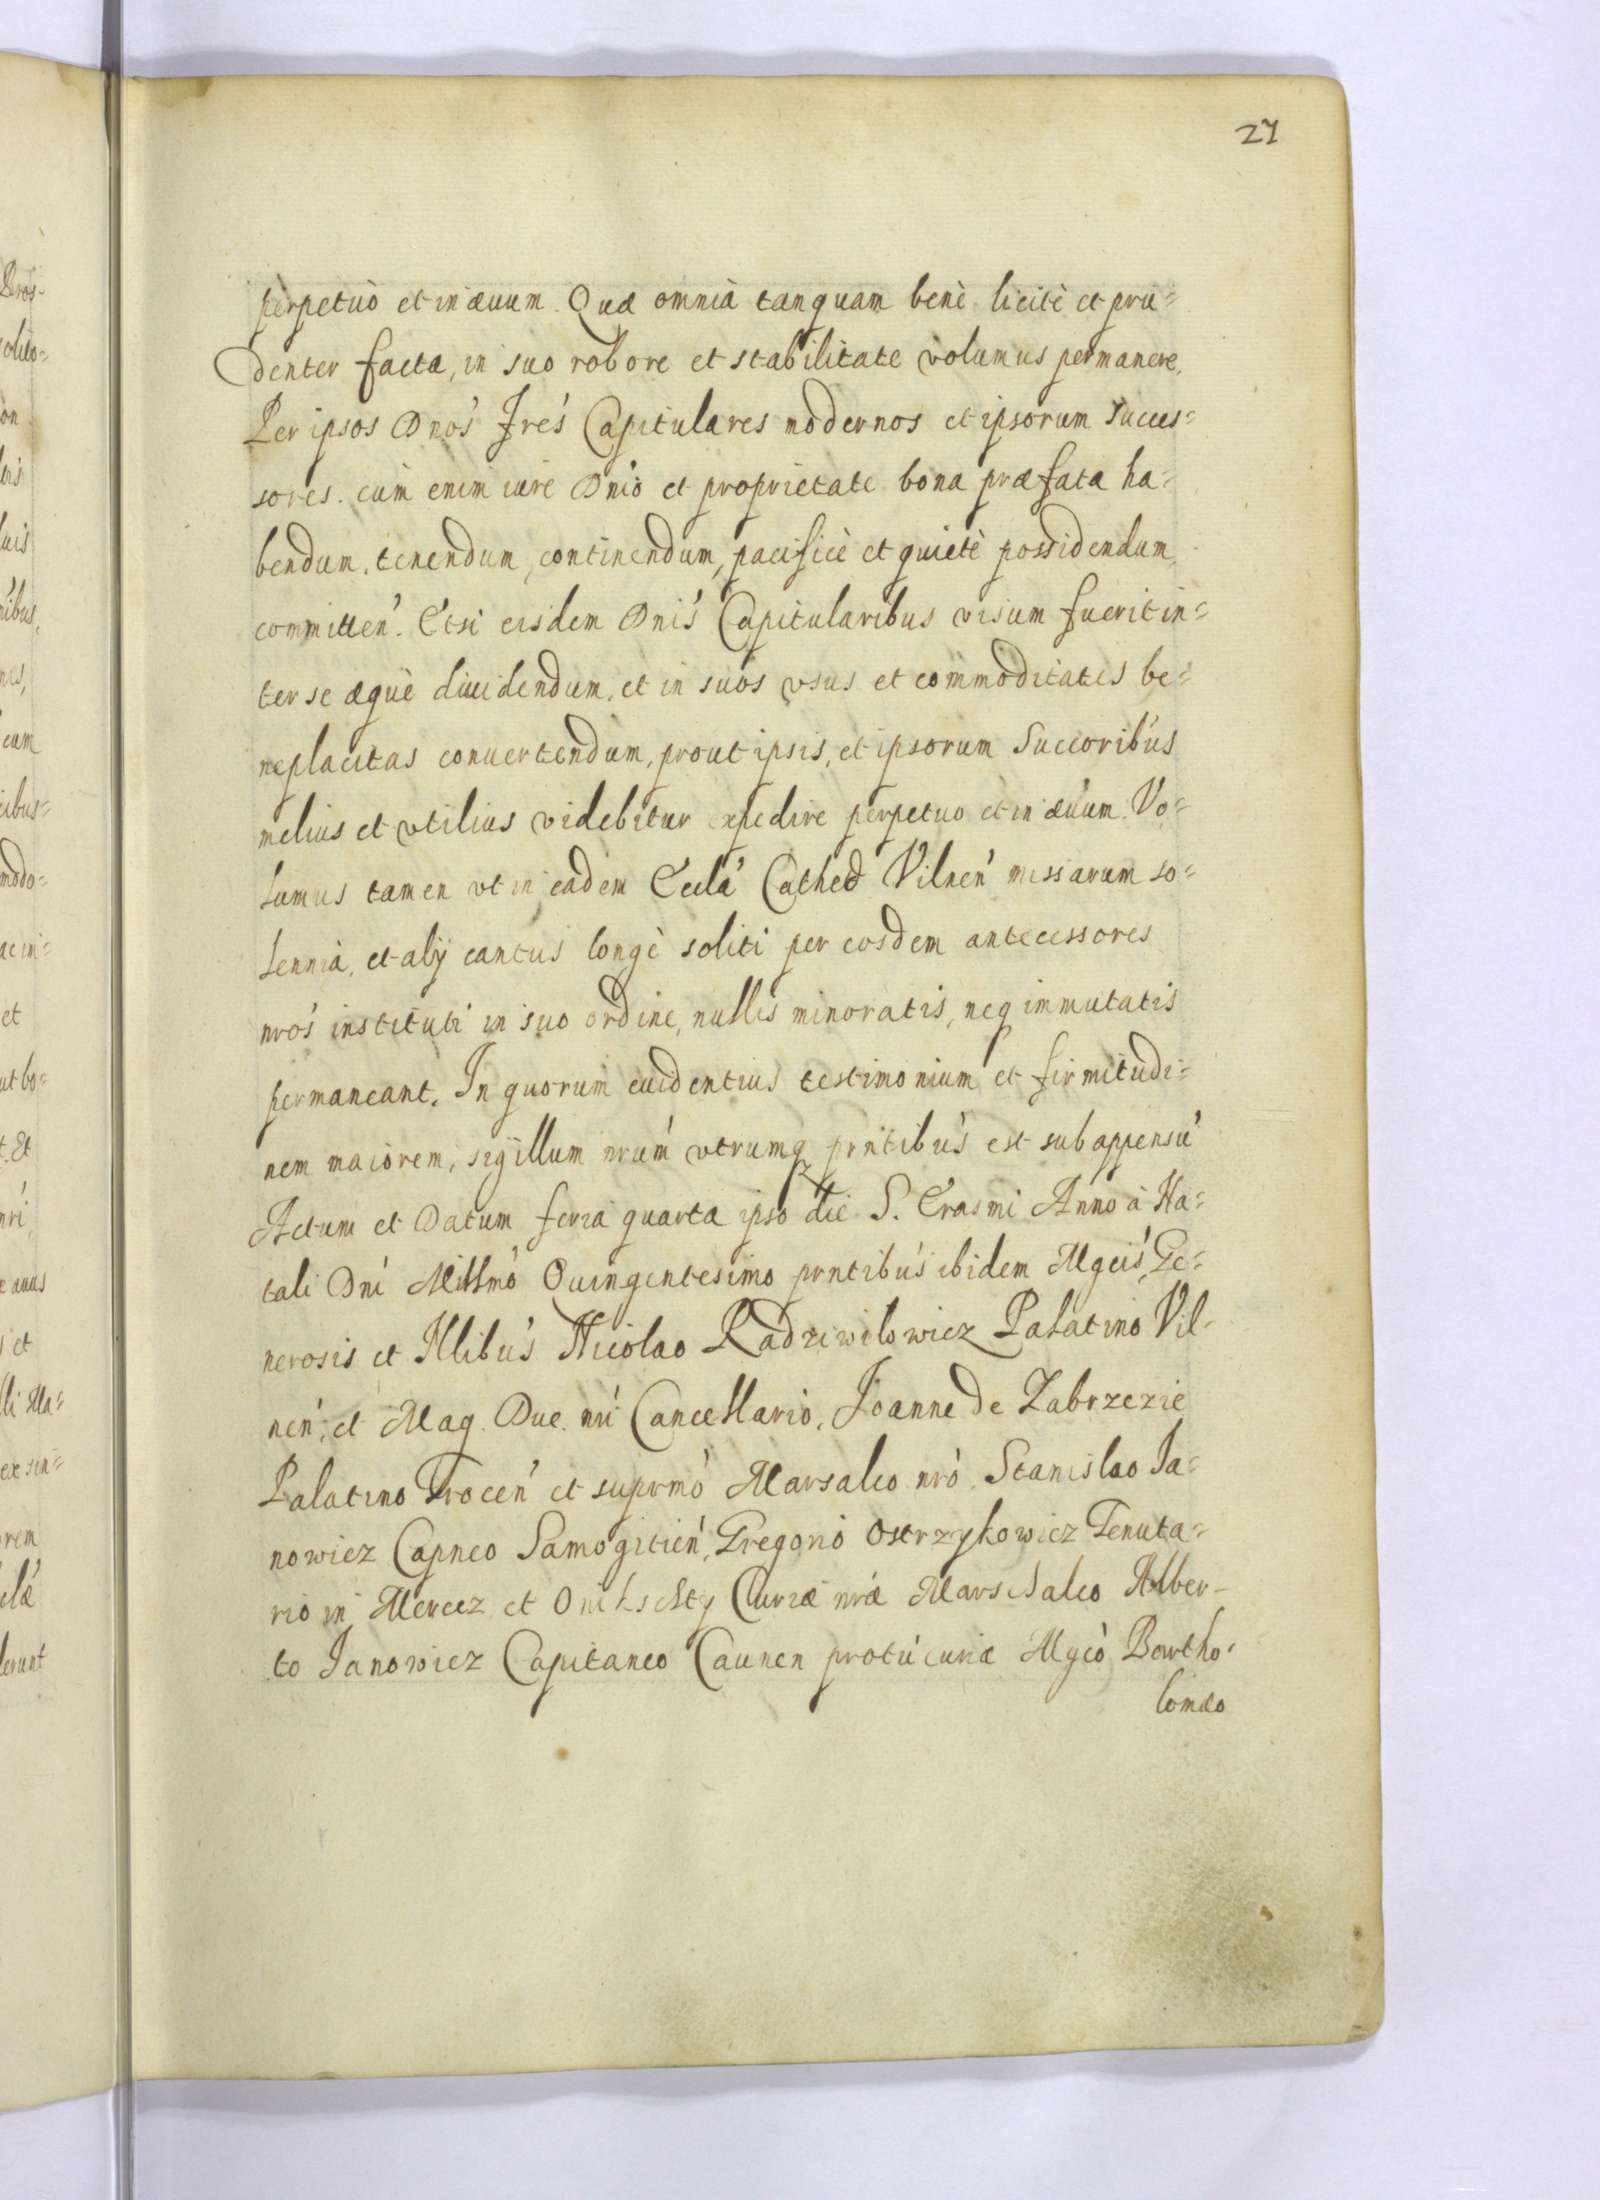 27
perpetuò et in æuum. Quæ omnia tanquam benè licitè et pru=
denter facta, in suo robore et stabilitate volumus permanere.
Per ipsos Dnós Frés Capitulares modernos et ipsorum succes=
sores. cum enim iure Dnió et proprietate bona præfata ha=
bendum, tenendum, continendum, pacificè et quietè possidendum
committeń. Etsi eisdem Dnís Capitularibus visum fuerit in=
ter se æquè diuidendum, et in suos vsus et commoditates be=
neplacitas conuertendum, prout ipsis, et ipsorum Succoribús
melius et vtilius videbitur expedire perpetuo et in æuum. Vo=
lumus tamen vt in eadem Eclá Cathed Vilneń missarum so=
lennia, et alÿ cantus longè soliti per eosdem antecessores
nrós instituti in suo ordine, nullis minoratis, neq immutatis
permaneant. In quorum euidentius testimonium et firmitudi=
nem maiorem, sigillum nrúm vtrumq prńtibús est subappensú
Actum et Datum feria quarta ipso die S. Erasmi Anno à Na=
tali Dní Millmó Quingentesimo prntibús ibidem Mgcís, Ge=
nerosis et Nlibús Nicolao Radziwilowicz Palatino Vil=
neń, et Mag. Duc. nrí Cancellario, Joanne de Zabrzezie
Palatino Troceń et suprmó Marsalco nró. Stanislao Ja=
nowicz Capneo Samogitień, Gregorio Ostrzykowicz Tenuta=
rio in Merecz et Onikschty Curiæ nræ Marschalco Alber=
to Janowicz Capitaneo Caunen protú curiæ Mgcó Bartho=
lomæo